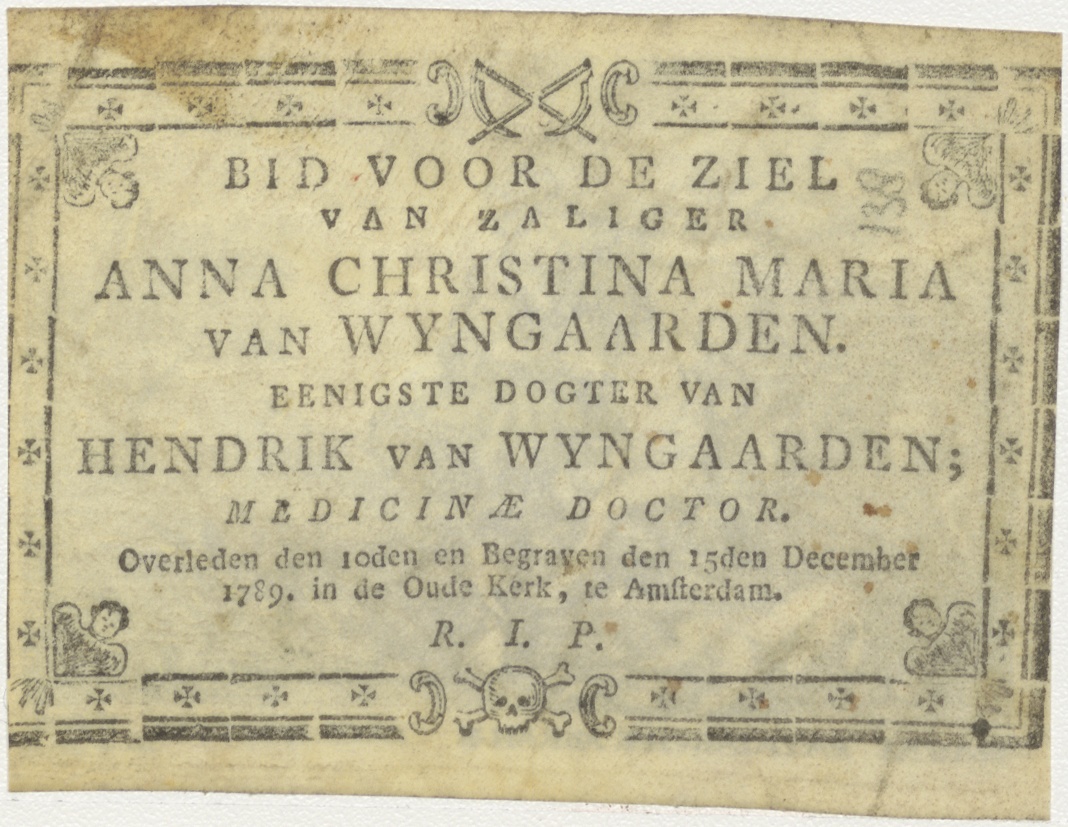 BID VOOR DE ZIEL
VAN ZALIGER
ANNA CHRISTINA MARIA
VAN WYNGAARDEN.
EENIGSTE DOGTER VAN
HENDRIK VAN WYNGAARDEN;
MEDICINÆ DOCTOR.
Overleden den 10den en Begraven den 15den December
1789. in de Oude Kerk, te Amſterdam.
R. I. P.